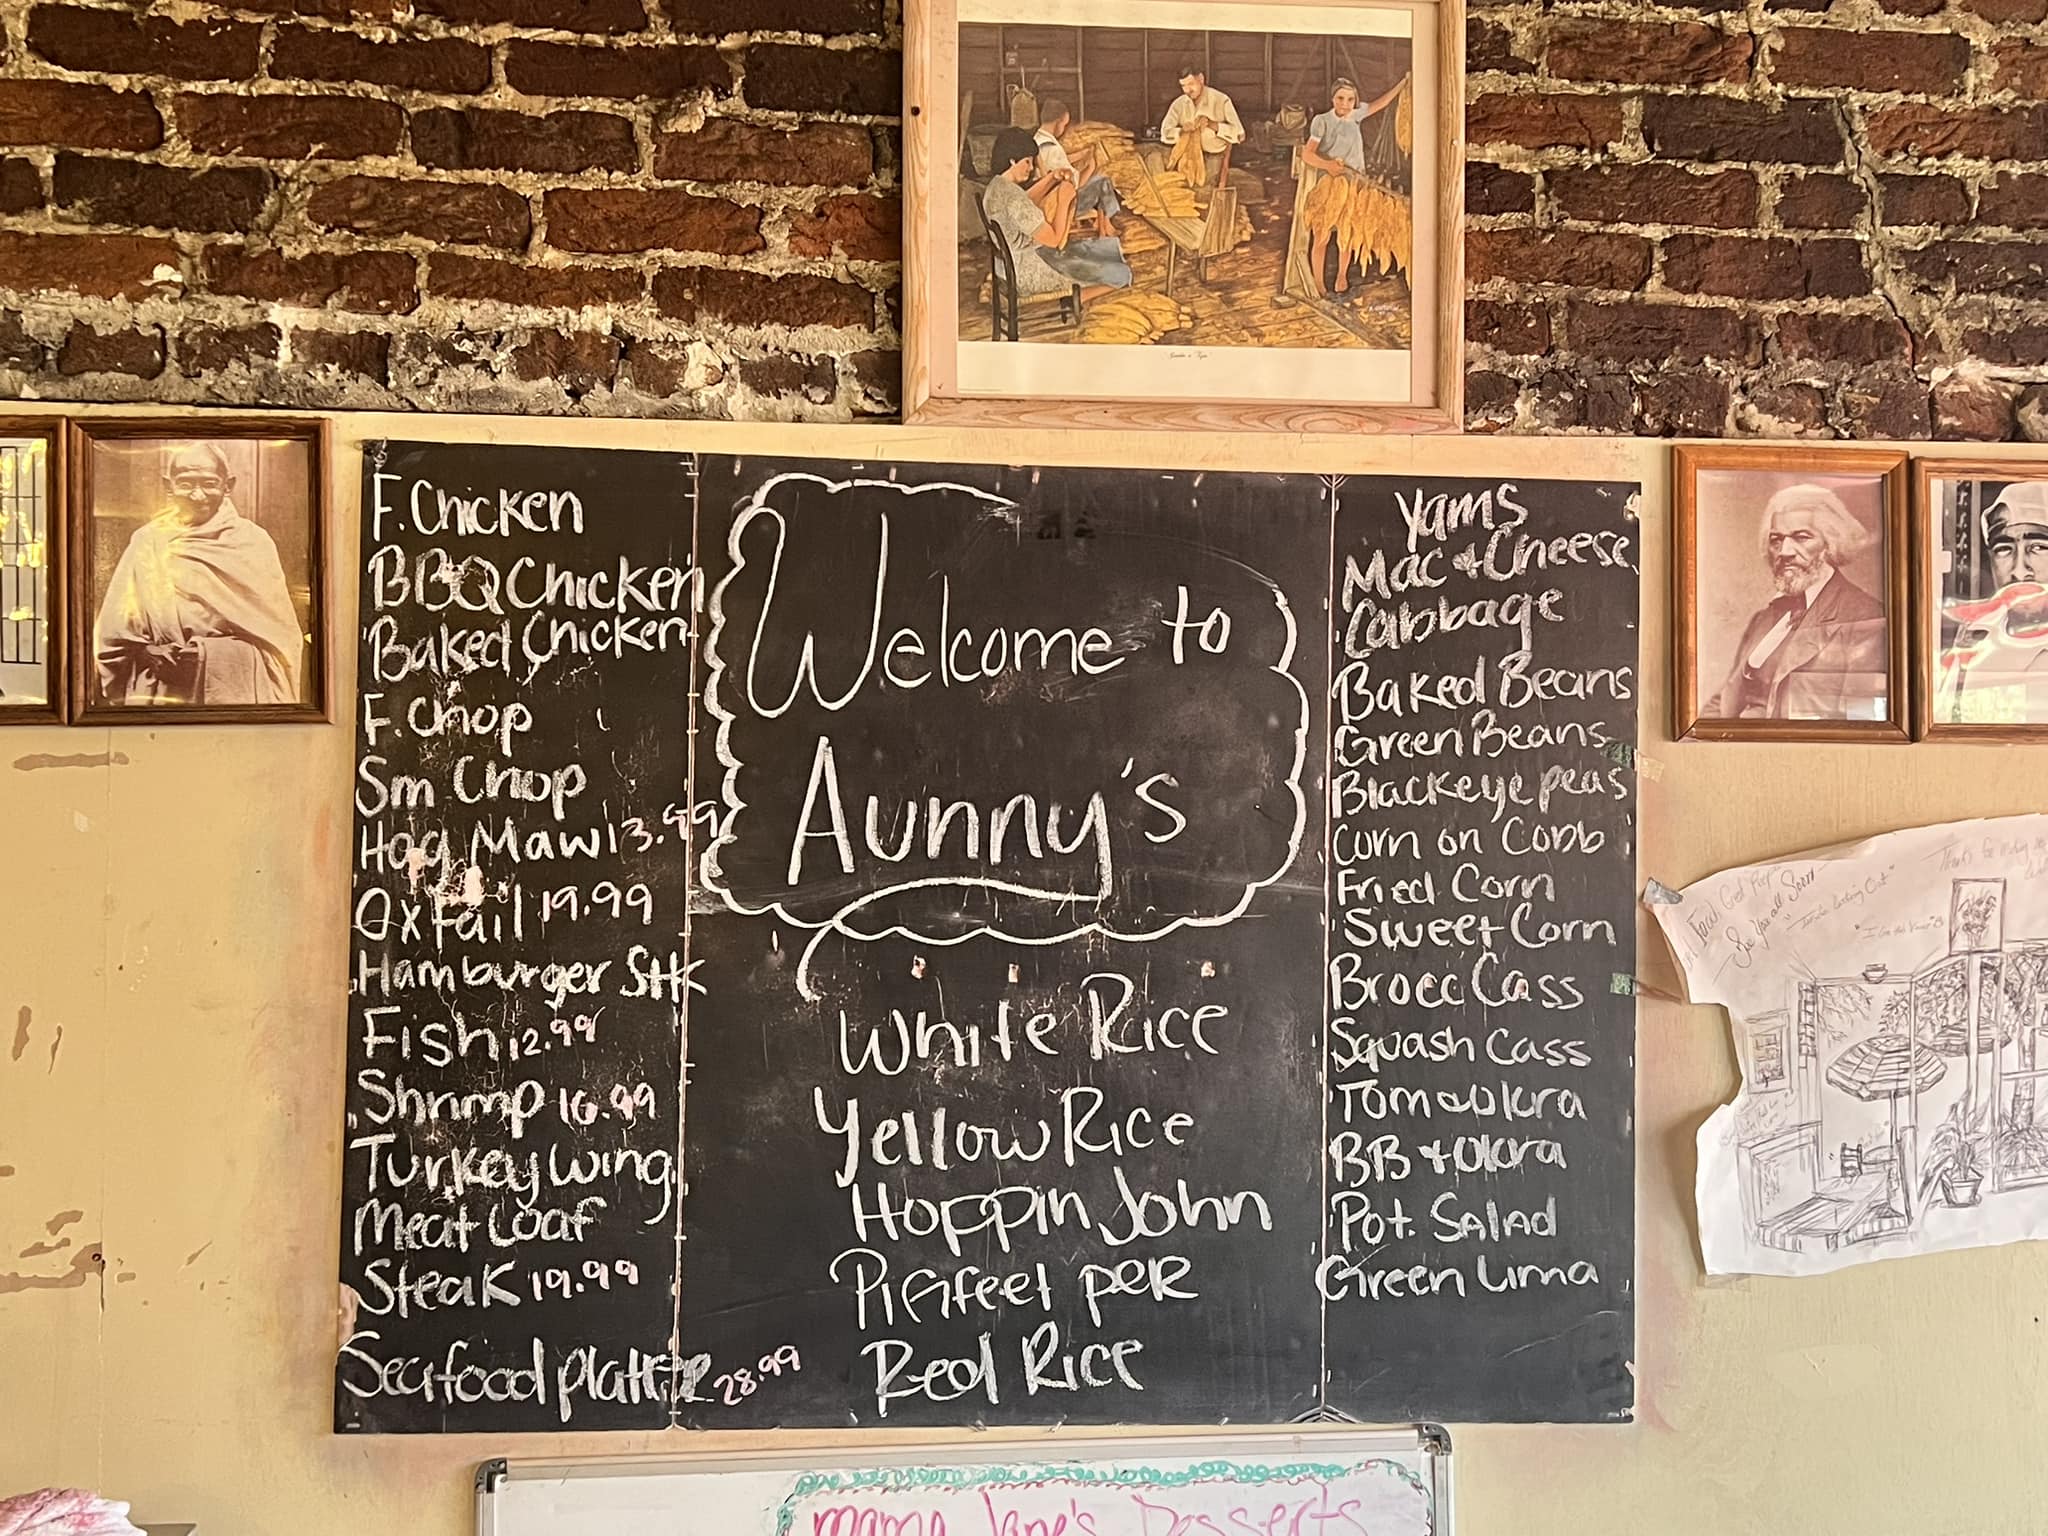 F. Chicken
BBQ Chicken
Baked Chicken
F. Chop
Sm Chop
Hog Maw 13.99
Oxtail 19.99
Hamburger Stk
Fish 12.99
Shrimp 16.99
Turkey Wing
Meat Loaf
Steak 19.99
Seafood Platter 28.99
Welcome to
Aunny's
White Rice
Yellow Rice
Hoppin John
Pigfeet per
Red Rice
Yams
Mac + Cheese
Cabbage
Baked Beans
Green Beans
Blackeye peas
Corn on Cobb
Fried Corn
Sweet Corn
Brocc Cass
Squash Cass
Tom + Okra
BB + Okra
Pot. Salad
Green Lima
Mama Jane's Desserts
See You all Soon